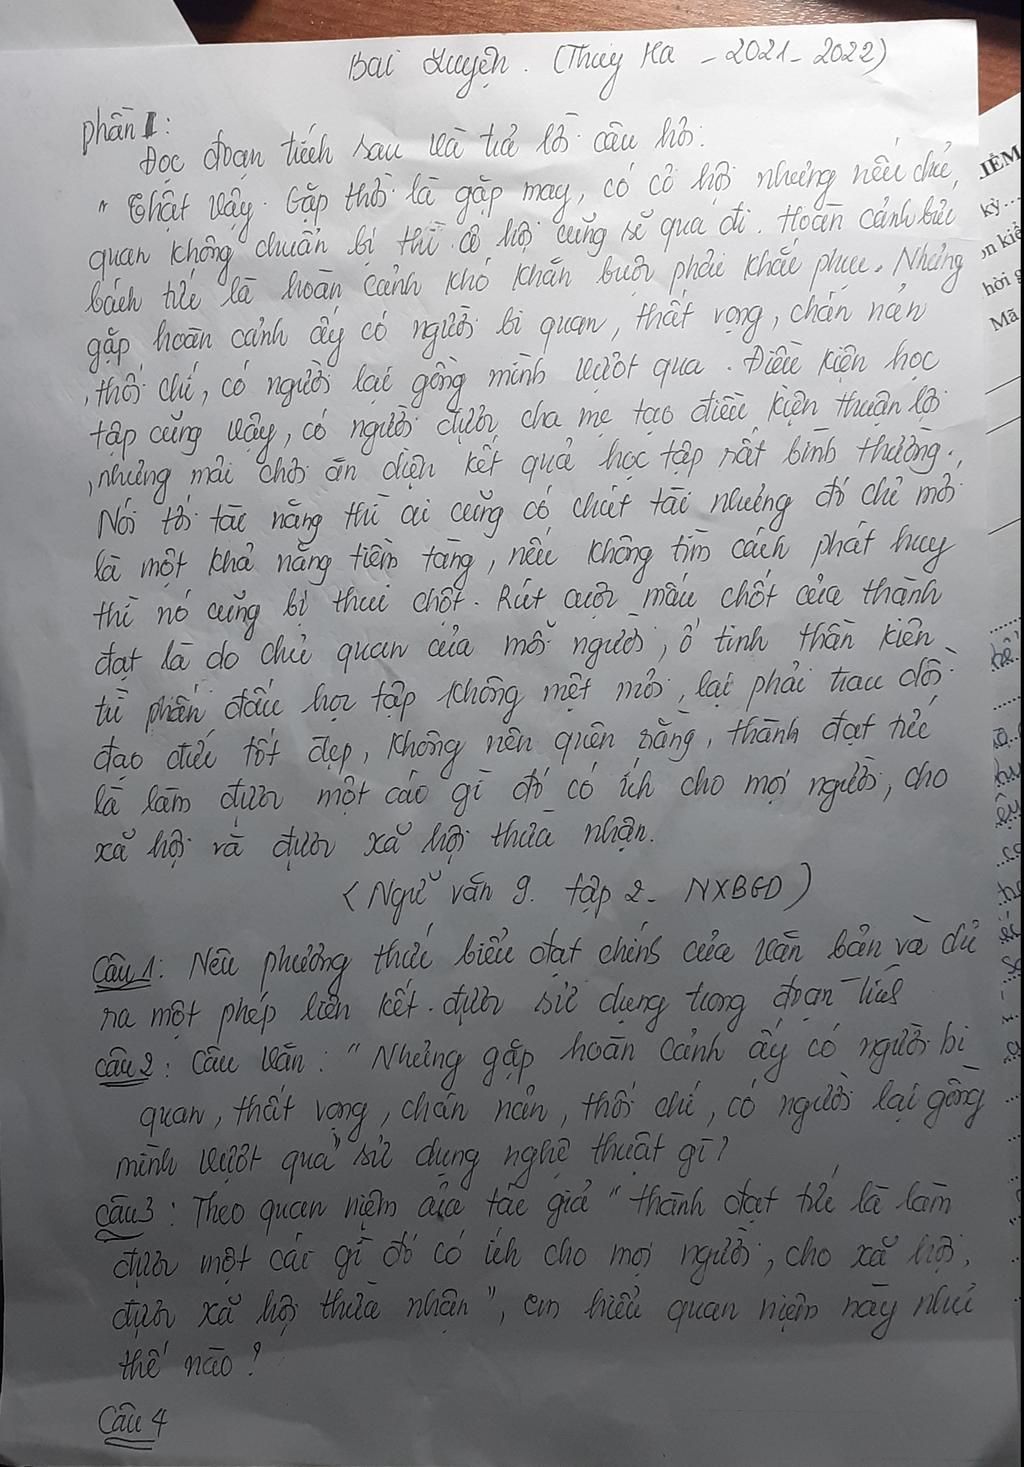 Bài Luyện. (Thúy Hà - 2021 - 2022)
phần I:
Đọc đoạn trích sau và trả lời câu hỏi:
" Thật vậy. Gặp thời là gặp may, có cơ hội nhưng nếu chủ
quan không chuẩn bị thì cơ hội cũng sẽ qua đi. Hoàn cảnh bức
bách tức là hoàn cảnh khó khăn buộc phải khắc phục. Nhưng
gặp hoàn cảnh ấy có người bi quan, thất vọng, chán nản
, thối chí, có người lại gồng mình vượt qua. Điều kiện học
tập cũng vậy, có người được cha mẹ tạo điều kiện thuận lợi
, nhưng mải chơi ăn diện kết quả học tập rất bình thường.,
Nói tới tài năng thì ai cũng có chút tài nhưng đó chỉ mới
là một khả năng tiềm tàng, nếu không tìm cách phát huy
thì nó cũng bị thui chột. Rút cuộc mấu chốt của thành
đạt là do chủ quan của mỗi người, ở tinh thần kiên
trì phấn đấu học tập không mệt mỏi, lại phải trau dồi
đạo đức tốt đẹp, không nên quên rằng, thành đạt tức
là làm được một cái gì đó có ích cho mọi người, cho
xã hội và được xã hội thừa nhận.
(Ngữ văn 9. tập 2. NXBGD)
Câu 1: Nêu phương thức biểu đạt chính của văn bản và chỉ
ra một phép liên kết được sử dụng trong đoạn trích
Câu 2: Câu văn: "Nhưng gặp hoàn cảnh ấy có người bi
quan, thất vọng, chán nản, thối chí, có người lại gồng
mình vượt qua" sử dụng nghệ thuật gì?
Câu 3: Theo quan niệm của tác giả "thành đạt tức là làm
được một cái gì đó có ích cho mọi người, cho xã hội,
được xã hội thừa nhận", em hiểu quan niệm này như
thế nào?
Câu 4